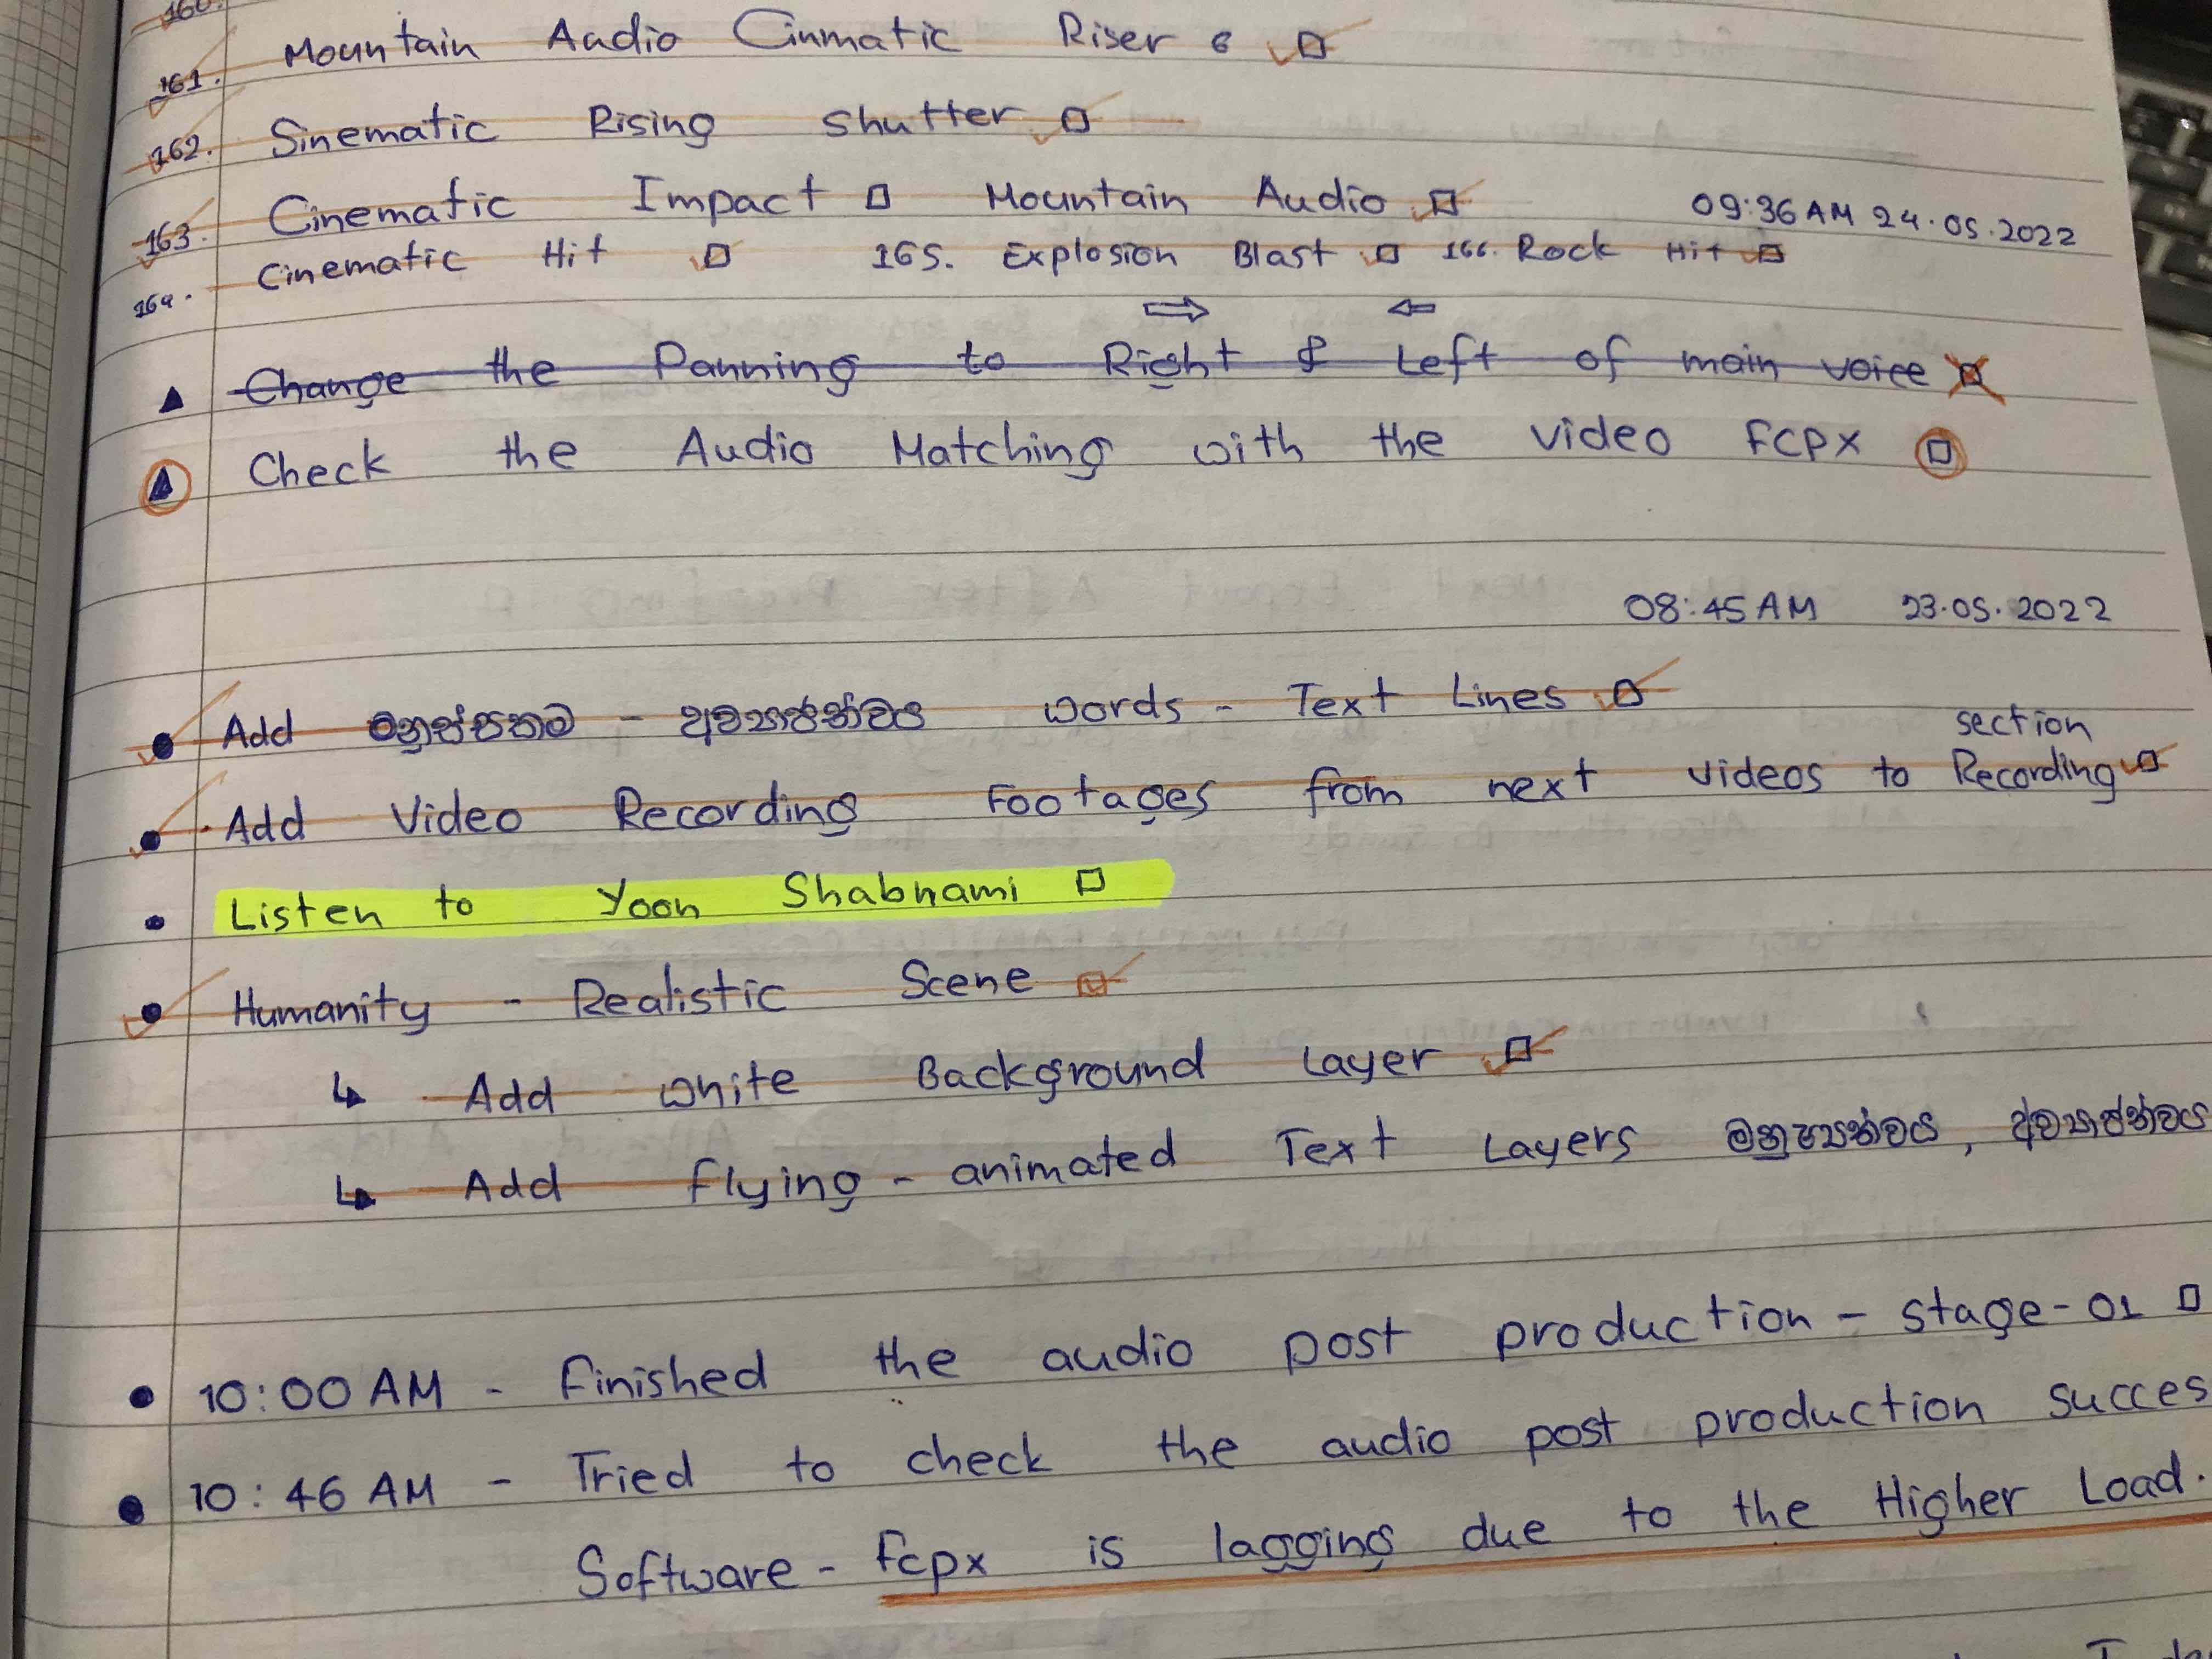 160.
161. Mountain Audio Cinmatic Riser 6
162. Sinematic Rising Shutter
163. Cinematic Impact Mountain Audio
09:36 AM 24.05.2022
164. Cinematic Hit 165. Explosion Blast 166. Rock Hit
Change the Panning to Right & Left of main voice
Check the Audio Matching with the video FCPX
08:45 AM 23.05.2022
Add words - Text Lines
section
Add Video Recording Footages from next videos to Recording
Listen to Yoon Shabnami
Humanity - Realistic Scene
Add white Background Layer
Add flying - animated Text Layers
10:00 AM - Finished the audio post production - stage - 01
10:46 AM - Tried to check the audio post production succes
Software - fcpx is lagging due to the Higher Load.